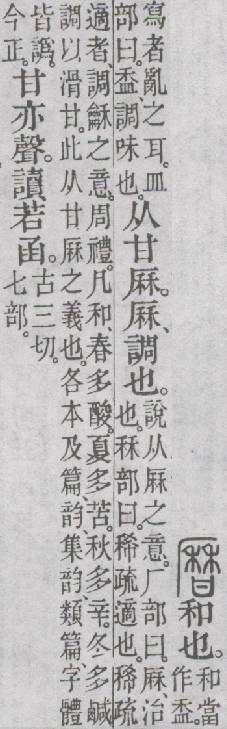 和也。和當作盉。
寫者亂之耳。皿部曰。盉調味也。从甘厤。厤、調也。說从厤之意。厂部曰。厤、治也。秝部曰。稀疏適也。稀疏
適者、調龢之意。周禮。凡和、春多酸。夏多苦。秋多辛。冬多鹹調以滑甘。此从甘厤之義也。各本及篇、韵、集韵、類篇、字體
皆譌。今正。甘亦聲。讀若函。古三切。七部。